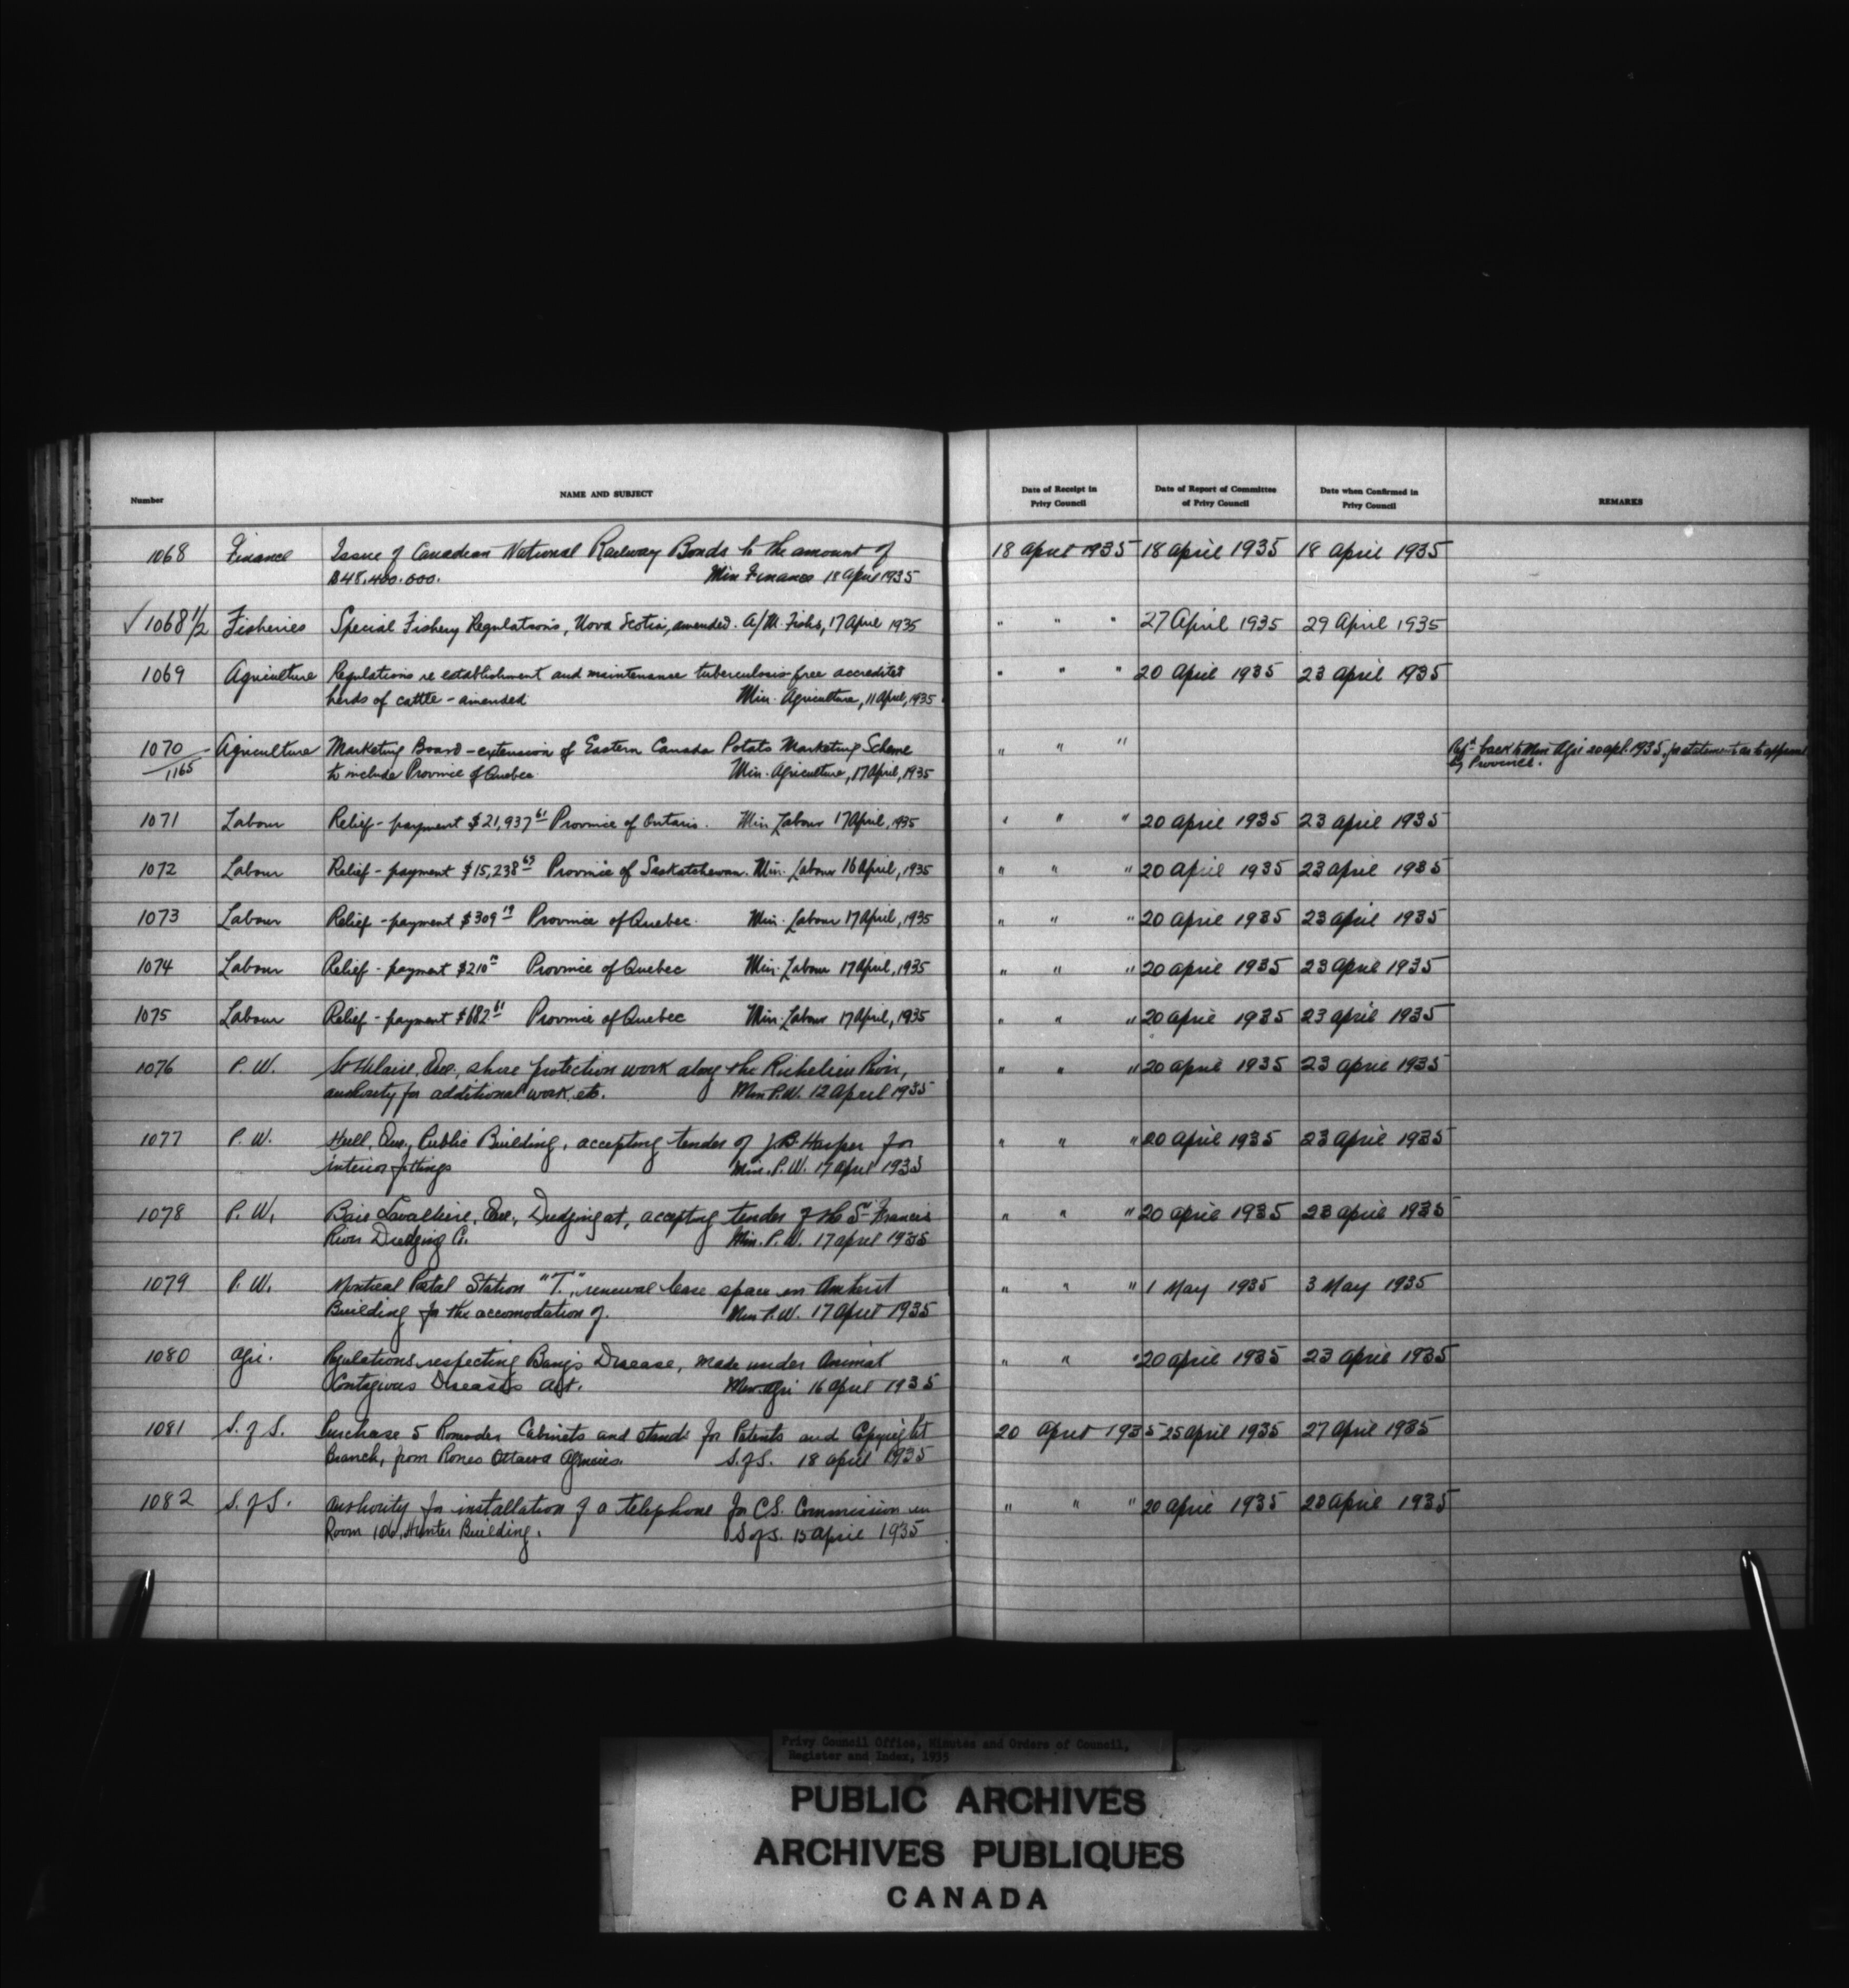 Number NAME AND SUBJECT Date of Receipt in Privy Council Date of Report of Committee of Privy Council Date when Confirmed in Privy Council REMARKS
1068 Finance Issue of Canadian National Railway Bonds to the amount of 18 April 1935 18 April 1935 18 April 1935
$48,400.000. Min Finance 18 April 1935
✓ 1068 1/2 Fisheries Special Fishery Regulations, Nova Scotia, amended. A/M. Fishs, 17 April 1935 " " " 27 April 1935 29 April 1935
1069 Agriculture Regulations re establishment and maintenance tuberculosis-free accredited " " " 20 April 1935 23 April 1935
herds of cattle - amended Min. Agriculture, 11 April, 1935
1070 - Agriculture Marketing Board - extension of Eastern Canada Potato Marketing Scheme " " " Ref'd back to Min Agri 20 Apl. 1935, for statement as to approval
1165 to include Province of Quebec. Min. Agriculture, 17 April, 1935 by Province.
1071 Labour Relief - payment $21,937 61 Province of Ontario. Min Labour 17 April, 1935 " " " 20 April 1935 23 April 1935
1072 Labour Relief - payment $15,238 63 Province of Saskatchewan. Min. Labour 16 April, 1935 " " " 20 April 1935 23 April 1935
1073 Labour Relief - payment $309 19 Province of Quebec. Min. Labour 17 April, 1935 " " " 20 April 1935 23 April 1935
1074 Labour Relief - payment $210 Province of Quebec Min. Labour 17 April, 1935 " " " 20 April 1935 23 April 1935
1075 Labour Relief - payment $682 61 Province of Quebec Min. Labour 17 April, 1935 " " " 20 April 1935 23 April 1935
1076 P. W. St Hilaire, Que., shore protection work along the Richelieu River, " " " 20 April 1935 23 April 1935
authority for additional work, etc. Min P.W. 12 April 1935
1077 P. W. Hull, Que., Public Building, accepting tender of J.B. Harper for " " " 20 April 1935 23 April 1935
interior fittings Min. P.W. 17 April 1935
1078 P. W. Baie Lavalliere, Que., Dredging at, accepting tender of the St Francis " " " 20 April 1935 23 April 1935
River Dredging Co. Min. P.W. 17 April 1935
1079 P. W. Montreal Postal Station "T.", renewal lease space in Amherst " " " 1 May 1935 3 May 1935
Building for the accomodation of. Min P.W. 17 April 1935
1080 Agri. Regulations respecting Bang's Disease, made under Animal " " " 20 April 1935 23 April 1935
Contagious Diseases Act. Min. Agri 16 April 1935
1081 S. of S. Purchase 5 Cabinets and stands for Patents and Copyright 20 April 1935 25 April 1935 27 April 1935
Branch, from Roneo Ottawa Agencies. S. of S. 18 April 1935
1082 S. of S. Authority for installation of a telephone for C.S. Commission in " " " 20 April 1935 23 April 1935
Room 106, Hunter Building. S of S. 15 April 1935
Privy Council Office, Minutes and Orders of Council,
Register and Index, 1935
PUBLIC ARCHIVES
ARCHIVES PUBLIQUES
CANADA